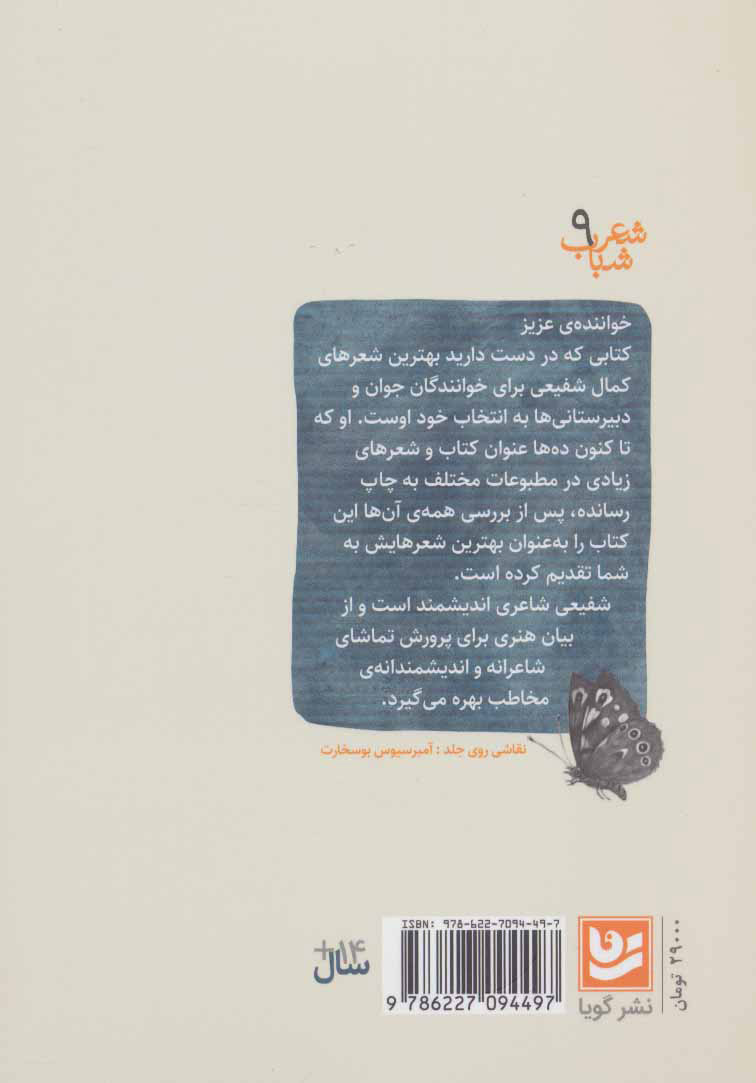 شعر
شباب ۹
خواننده‌ی عزیز
کتابی که در دست دارید بهترین شعرهای
کمال شفیعی برای خوانندگان جوان و
دبیرستانی‌ها به انتخاب خود اوست. او که
تا کنون ده‌ها عنوان کتاب و شعرهای
زیادی در مطبوعات مختلف به چاپ
رسانده، پس از بررسی همه‌ی آن‌ها این
کتاب را به‌عنوان بهترین شعرهایش به
شما تقدیم کرده است.
شفیعی شاعری اندیشمند است و از
بیان هنری برای پرورش تماشای
شاعرانه و اندیشمندانه‌ی
مخاطب بهره می‌گیرد.
نقاشی روی جلد : آمبرسیوس بوسخارت
۲۹۰۰۰ تومان
نشر گویا
ISBN: 978-622-7094-49-7
9 786227 094497
+۱۴
سال